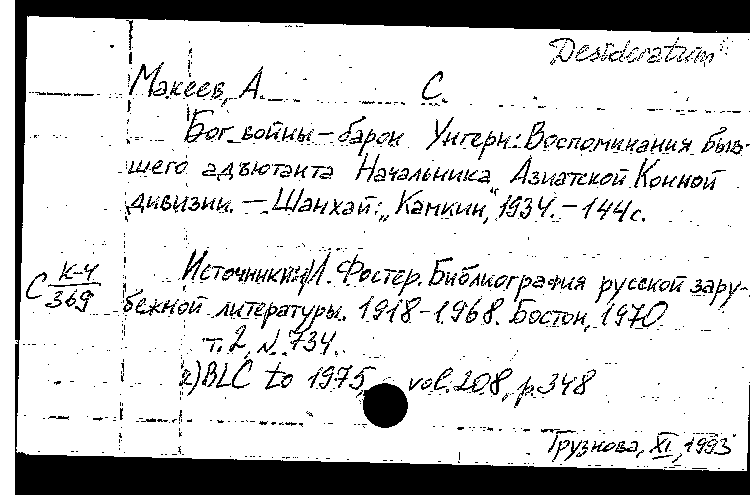 Desideratum
Макеев, А. С.
Бог войны – барон Унгерн: Воспоминания быв-
шего адъютанта Начальника Азиатской Конной
дивизии. – Шанхай: „Камкин", 1934. – 144 с.
С К-4
369
Источники: 1) Л. Фостер. Библиография русской зару-
бежной литературы. 1918-1968. Бостон, 1970
т. 2, N. 734.
2) BLC to 1975, vol. 208, p. 348
Грузнова, XI, 1993